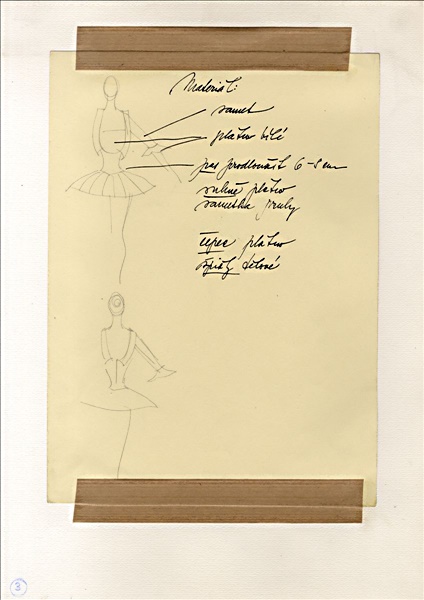 Materiál:
samet
plátno bílé
pas prodloužit 6-8 cm
sukně plátno
sametka pruhy
čepec plátno
špičky tělové
3